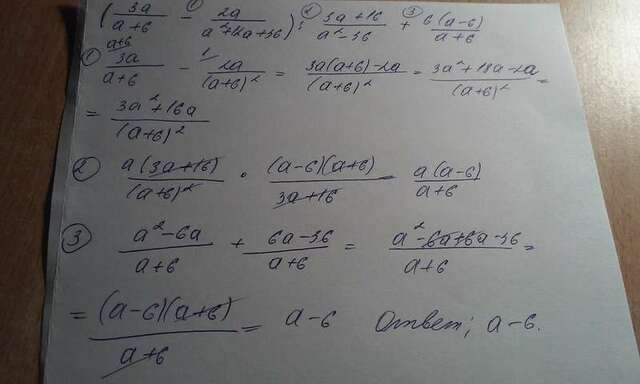 (3a/(a+6) - 2a/(a²+12a+36)) : (3a+16)/(a²-36) + 6(a-6)/(a+6)
① 3a/(a+6) - 2a/(a+6)² = (3a(a+6)-2a)/(a+6)² = (3a²+18a-2a)/(a+6)² =
= (3a²+16a)/(a+6)²
② a(3a+16)/(a+6)² · (a-6)(a+6)/(3a+16) a(a-6)/(a+6)
③ (a²-6a)/(a+6) + (6a-36)/(a+6) = (a²-6a+6a-36)/(a+6) =
= (a-6)(a+6)/(a+6) = a-6 Ответ; a-6.